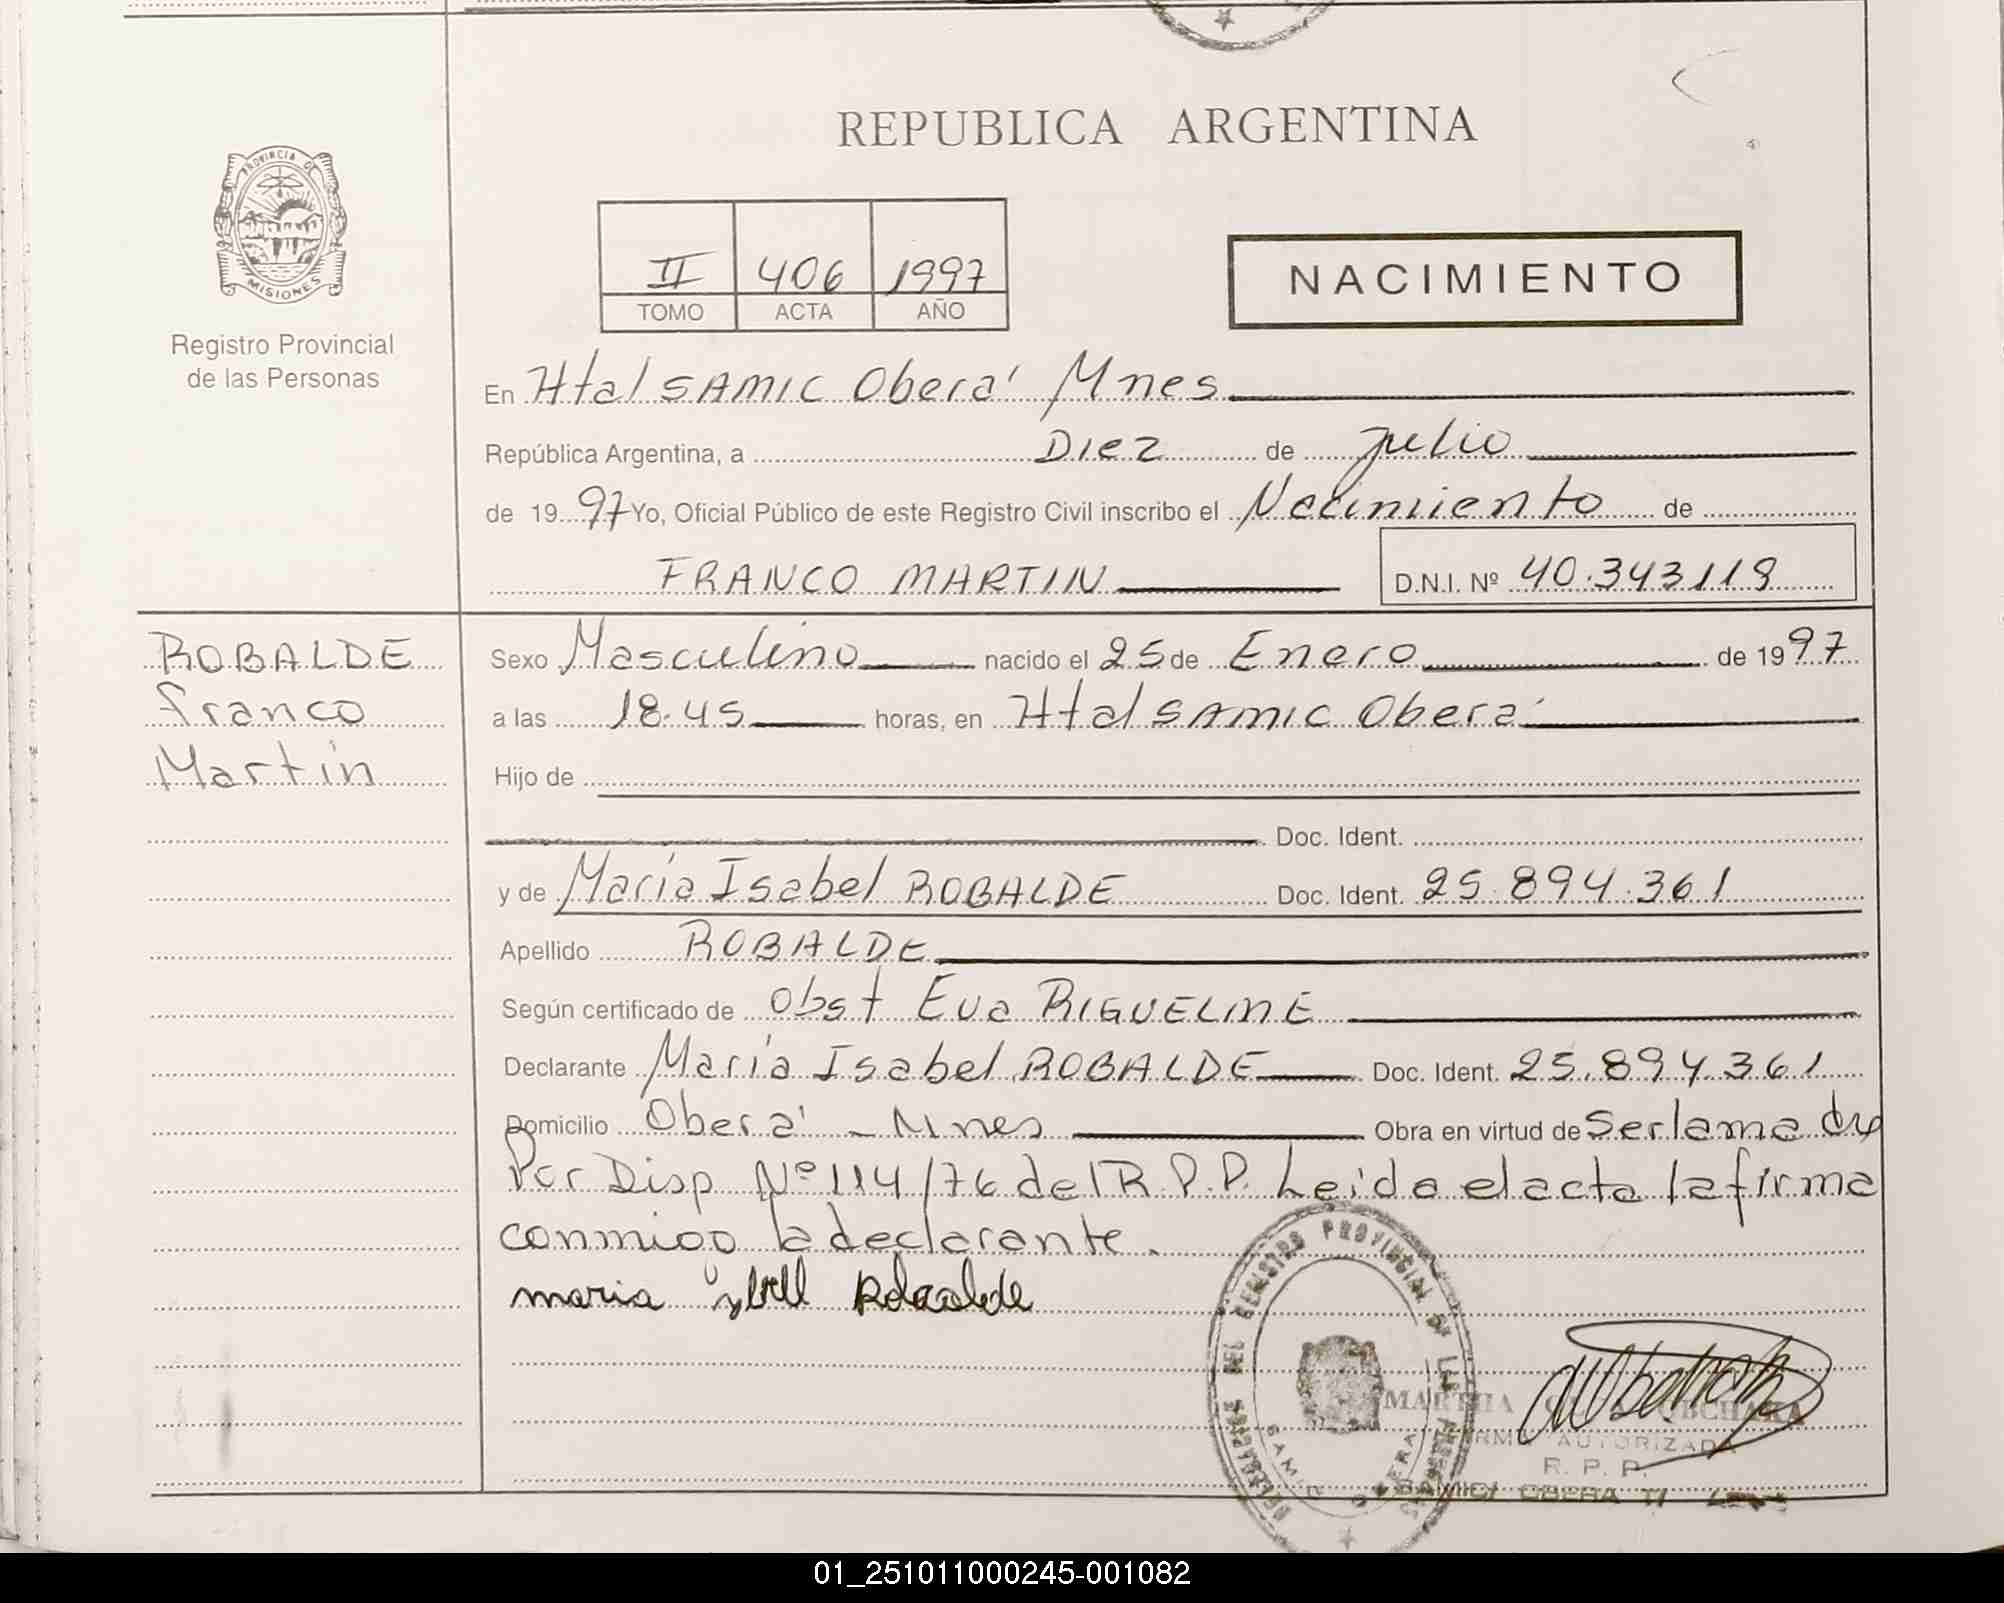 REPUBLICA ARGENTINA
PROVINCIA DE
MISIONES
Registro Provincial
de las Personas
II 406 1997
TOMO ACTA AÑO
NACIMIENTO
En Htal SAMIC Oberá Mnes
República Argentina, a Diez de Julio
de 1997 Yo, Oficial Público de este Registro Civil inscribo el Nacimiento de
FRANCO MARTIN D.N.I. Nº 40.343119
ROBALDE
Franco
Martín
Sexo Masculino nacido el 25 de Enero de 1997
a las 18.45 horas, en Htal SAMIC Oberá
Hijo de
Doc. Ident.
y de María Isabel ROBALDE Doc. Ident. 25.894.361
Apellido ROBALDE
Según certificado de Obst Eva RIGUELME
Declarante María Isabel ROBALDE Doc. Ident. 25.894.361
Domicilio Oberá - Mnes Obra en virtud de Ser la madre
Por Disp Nº 114/76 del R.P.P. Leida el acta la firma
conmigo la declarante.
maria Robalde
REGISTRO PROVINCIAL DE LAS PERSONAS
SAMIC OBERA
MARTHA
FIRMA AUTORIZADA
R. P. P.
SAMIC OBERA
01_251011000245-001082